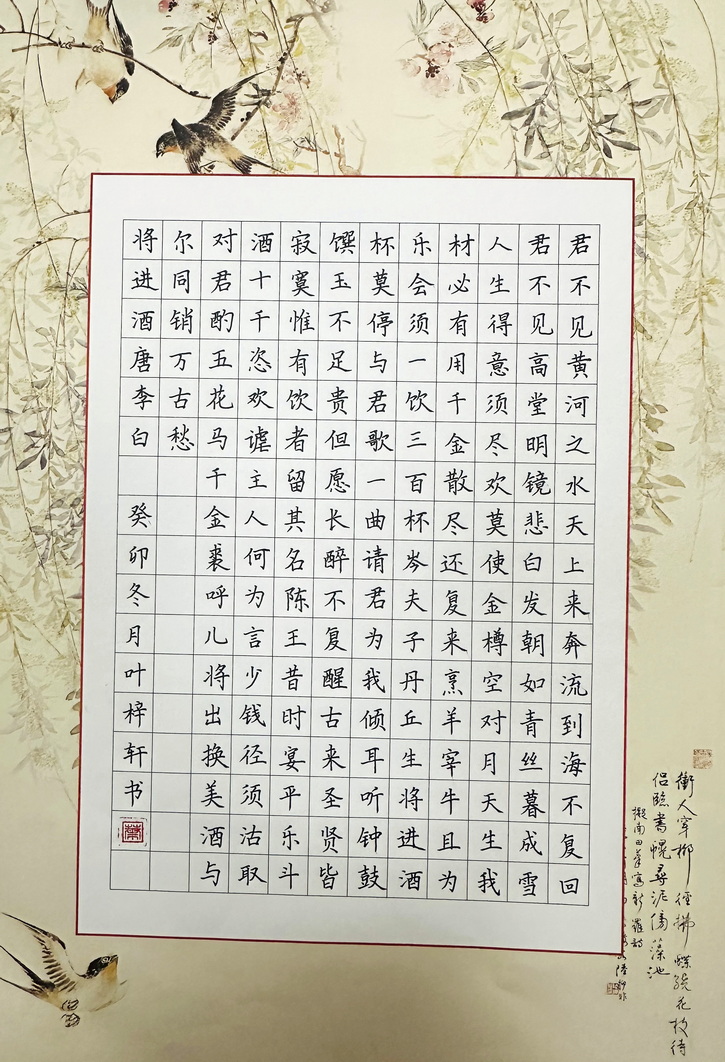 君不见黄河之水天上来奔流到海不复回
君不见高堂明镜悲白发朝如青丝暮成雪
人生得意须尽欢莫使金樽空对月天生我
材必有用千金散尽还复来烹羊宰牛且为
乐会须一饮三百杯岑夫子丹丘生将进酒
杯莫停与君歌一曲请君为我倾耳听钟鼓
馔玉不足贵但愿长醉不复醒古来圣贤皆
寂寞惟有饮者留其名陈王昔时宴平乐斗
酒十千恣欢谑主人何为言少钱径须沽取
对君酌五花马千金裘呼儿将出换美酒与
尔同销万古愁
将进酒唐李白 癸卯冬月叶梓轩书
衝人穿柳徑拂蝶繞花枝待
侶臨書幌尋泥傍藻池
擬南田筆寫新羅韵